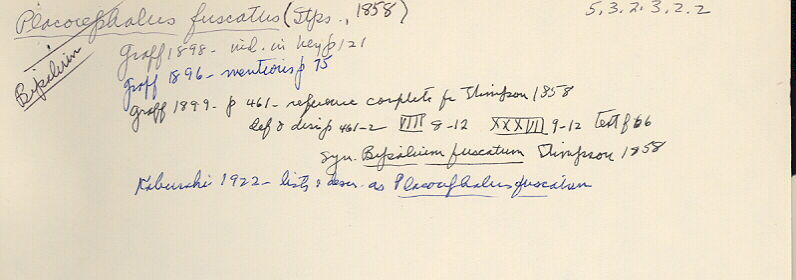 Placocephalus fuscatus (Stps., 1858) 5.3.2.3.2.2
Bipalium
Graff 1898 - ind. in key p 121
Graff 1896 - mentions p 75
Graff 1899 - p 461 - reference complete for Stimpson 1858
def & discn p 461-2 VIII 8-12 XXXVII 9-12 Text f 66
Syn. Bipalium fuscatum Stimpson 1858
Kaburaki 1922 - lists & descr. as Placocephalus fuscatus